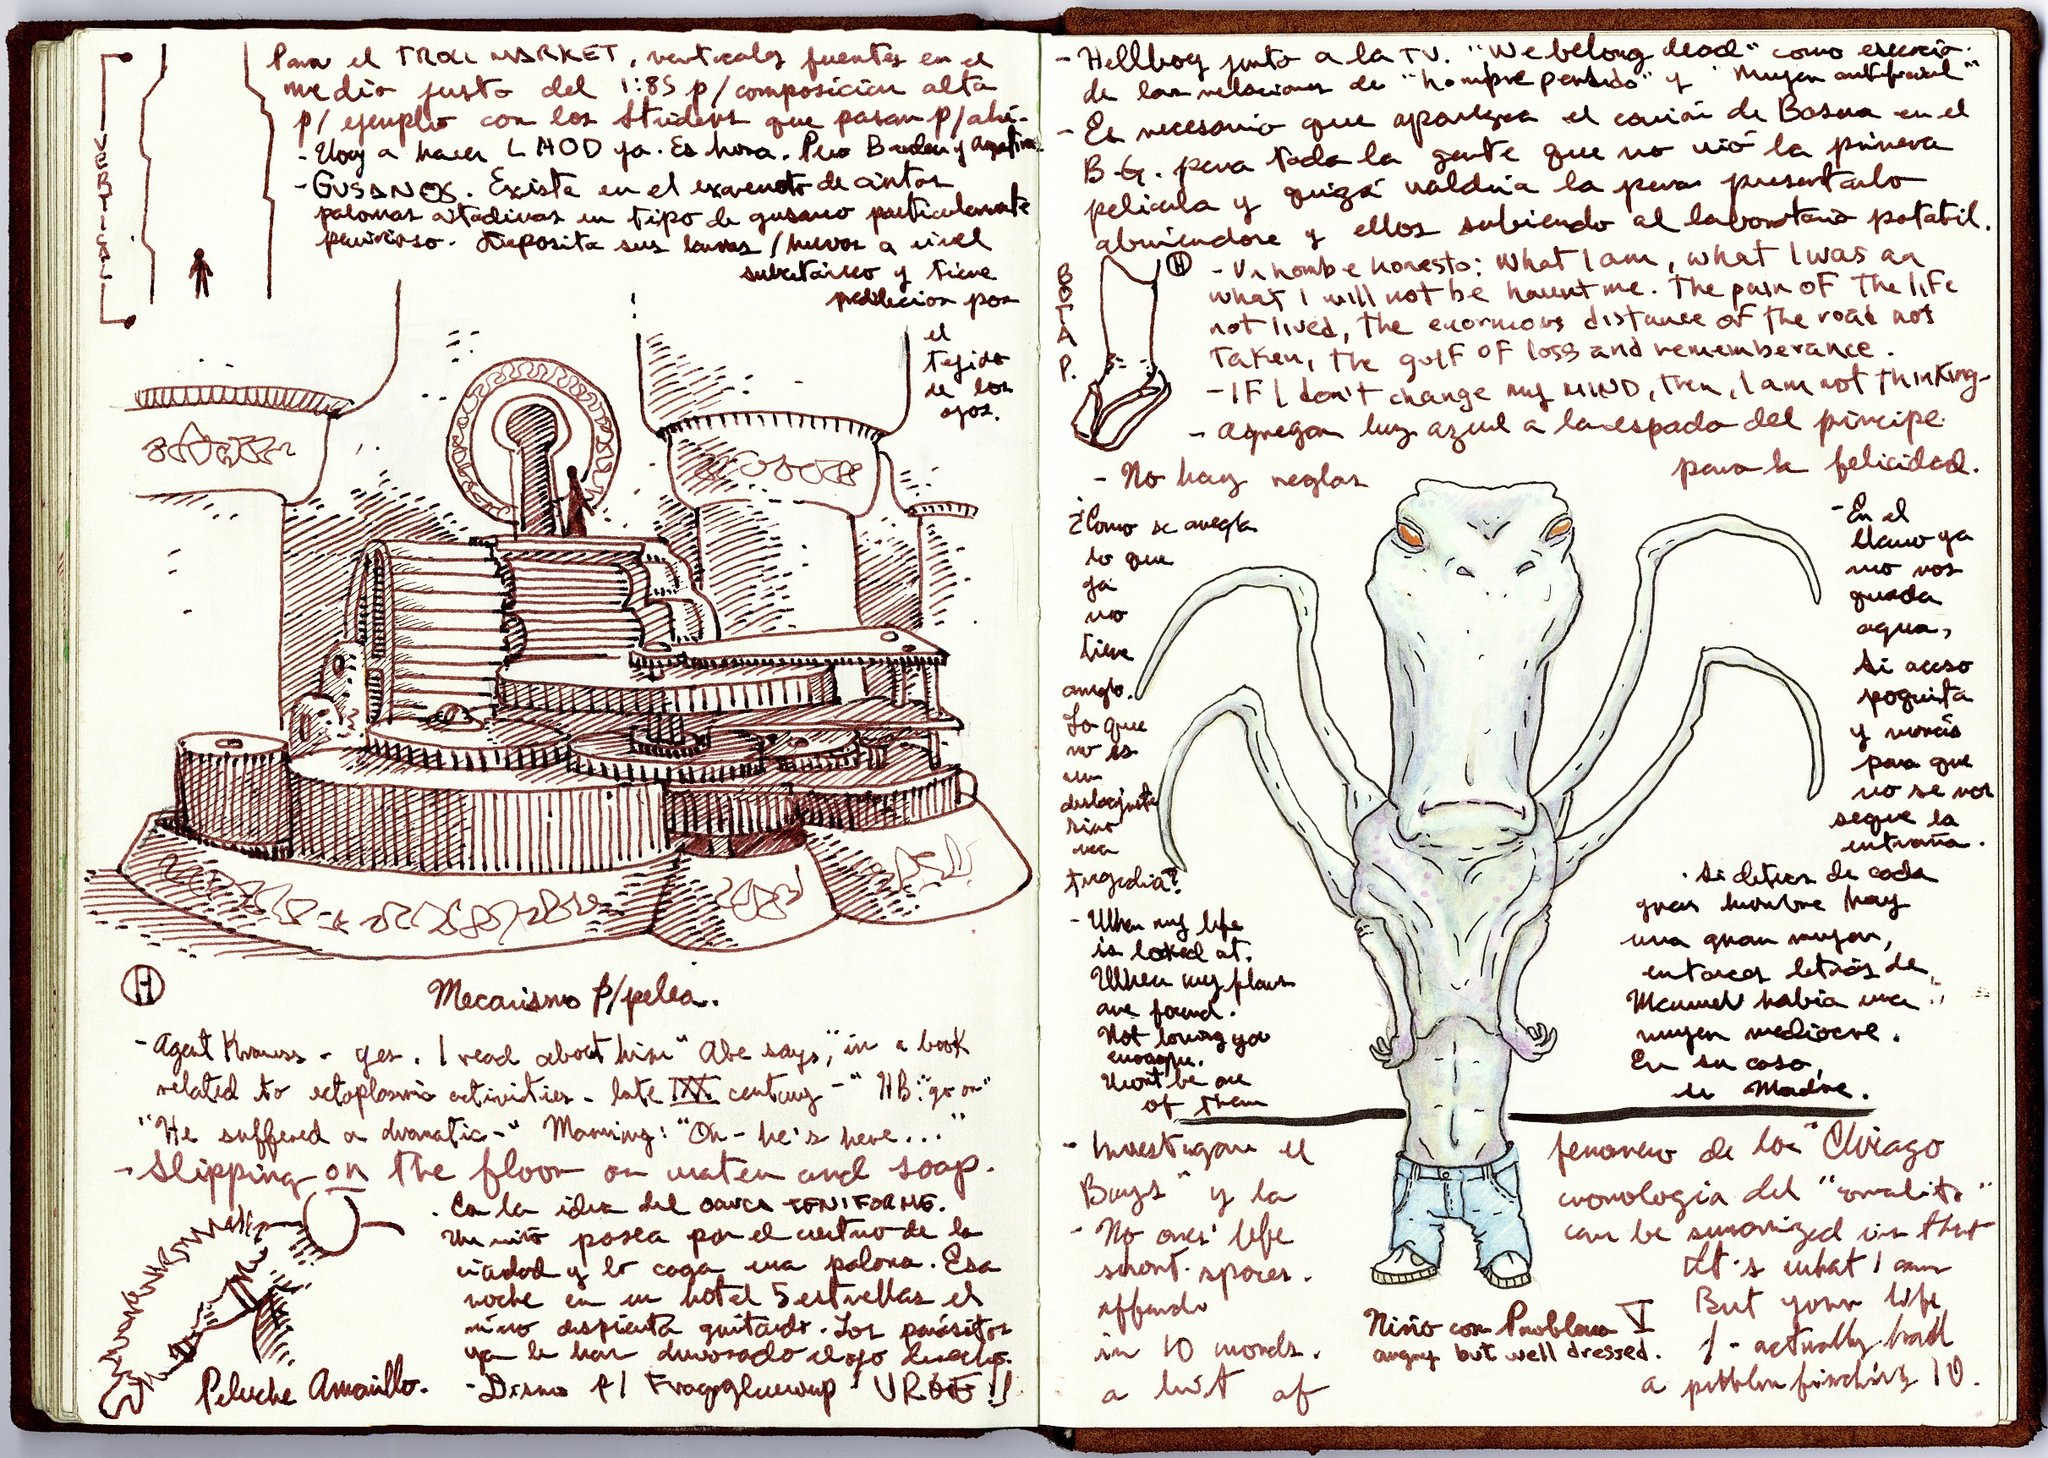 VERTICAL
Para el TROLL MARKET, verticales fuertes en el
medio justo del 1:85 p/composición alta
p/ ejemplo con los Striders que pasan p/ahí.
- Voy a hacer LMOD ya. Es hora. Pero Baden y
- GUSANOS. Existe en el excremento de ciertas
palomas citadinas un tipo de gusano particularmente
pernicioso. Deposita sus larvas/huevos a nivel
subcutáneo y tiene
predilección por
el
tejido
de los
ojos.
H
Mecanismo p/pelea.
- Agent Krauss - yes. I read about him "Abe says," in a book
related to ectoplasmic activities - late IXX century -" HB: "go on"
"He suffered a dramatic-" Manning: "Oh - he's here..."
- Slipping on the floor on water and soap.
. Con la idea del
Un niño pasea por el centro de la
ciudad y lo caga una paloma. Esa
noche en un hotel 5 estrellas el
niño despierta gritando. Los parásitos
ya le han devorado el ojo derecho.
Peluche Amarillo.
- Hellboy junto a la TV. "We belong dead" como esencia
de las relaciones de "hombre perdido" y "Mujer
- Es necesario que aparezca el camión de Basura en el
B.G. para toda la gente que no vió la primera
película y quizá valdría la pena presentarlo
abriendose y ellos subiendo al laboratorio portatil.
BOTA P.
H
- Un hombre honesto: What I am, what I was an
what I will not be haunt me. The pain of the life
not lived, the enormous distance of the road not
taken, the gulf of loss and rememberance.
- IF I don't change my MIND, then, I am not thinking -
- Agregar luz azul a la espada del príncipe
- No hay reglas para la felicidad.
¿Como se arregla
lo que
ya
no
tiene
arreglo.
Lo que
no es
un
sino
una
tragedia?
- When my life
is looked at.
When my flaws
are found.
Not loving you
enough.
Won't be one
of them
- En el
llano ya
no nos
queda
agua,
si acaso
poquita
y
para que
no se nos
seque la
entraña.
. Si detras de cada
gran hombre hay
una gran mujer,
entonces detrás de
Manuel había una
mujer mediocre.
En su caso,
su Madre.
- Investigar el fenomeno de los "Chicago
Boys" y la cronología del
- No ones' life can be sumarized in that
short spaces. It's what I am
But your life
in 10 words. I - actually had
a list of a problem finishing 10.
Niño con Problema V
angry but well dressed.